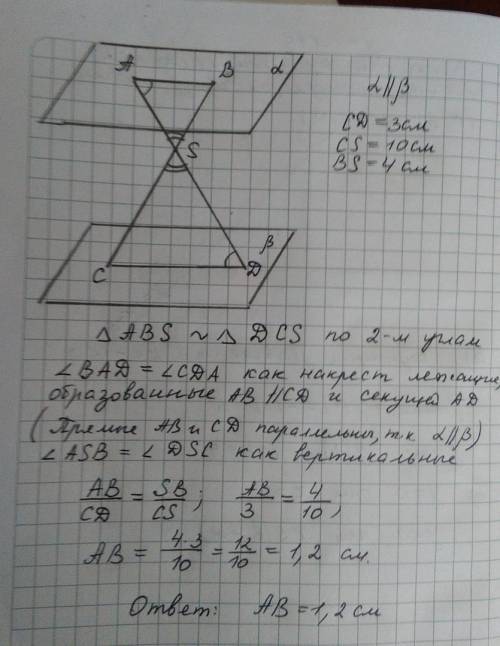 A B α
α∥β
CD = 3см
CS = 10см
BS = 4 см
S
β
C D
Δ ABS ~ Δ DCS по 2-м углам
∠BAD = ∠CDA как накрест лежащие,
образованные AB ∥ CD и секущей AD
(Прямые AB и CD параллельны, т.к α∥β)
∠ASB = ∠DSC как вертикальные
AB/CD = SB/CS; AB/3 = 4/10;
AB = 4·3/10 = 12/10 = 1,2 см.
Ответ: AB = 1,2 см